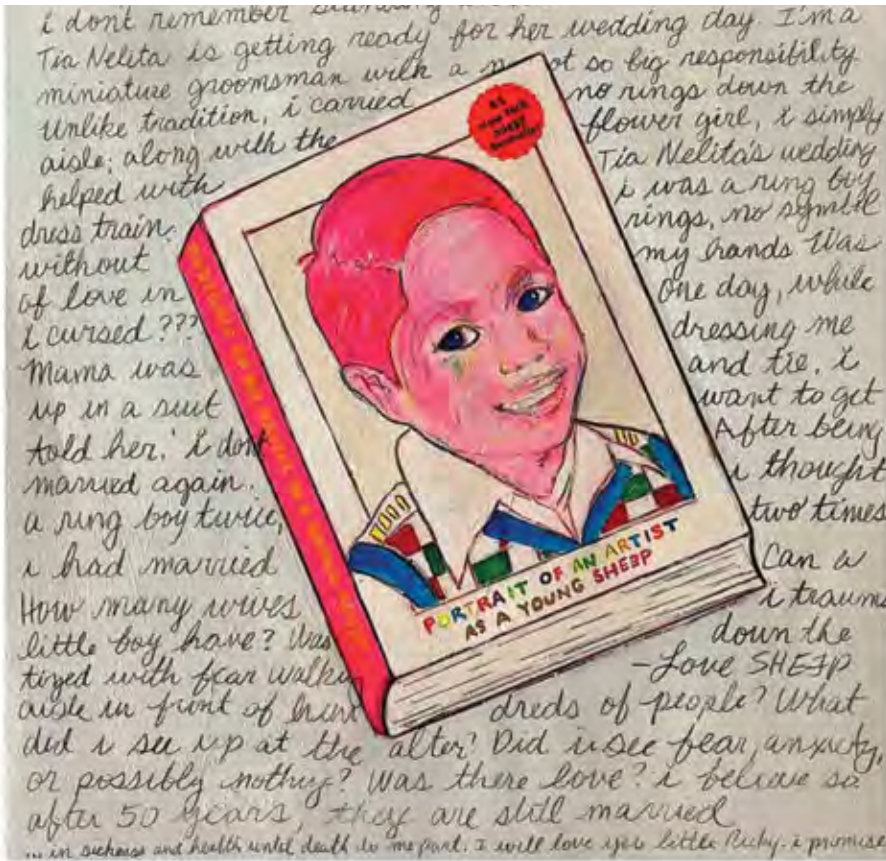 i don't remember
Tia Nelita is getting ready for her wedding day. I'm a
miniature groomsman with a not so big responsibility.
Unlike tradition, i carried no rings down the
aisle; along with the flower girl, i simply
helped with Tia Nelita's wedding
dress train. i was a ring boy
without rings, no symbol
of love in my hands Was
i cursed??? One day, while
Mama was dressing me
up in a suit and tie, i
told her,' i dont want to get
married again. After being
a ring boy twice, i thought
i had married two times
How many wives Can a
little boy have? Was i trauma
tized with fear walkin down the
- Love SHEEP
aisle in front of hun dreds of people? What
did i see up at the alter? Did i see fear, anxiety,
or possibly nothing? Was there love? i believe so
after 50 years, they are still married
... in sickness and health until death do me part. I will love you little Ricky. i promise
PORTRAIT OF AN ARTIST
AS A YOUNG SHEEP